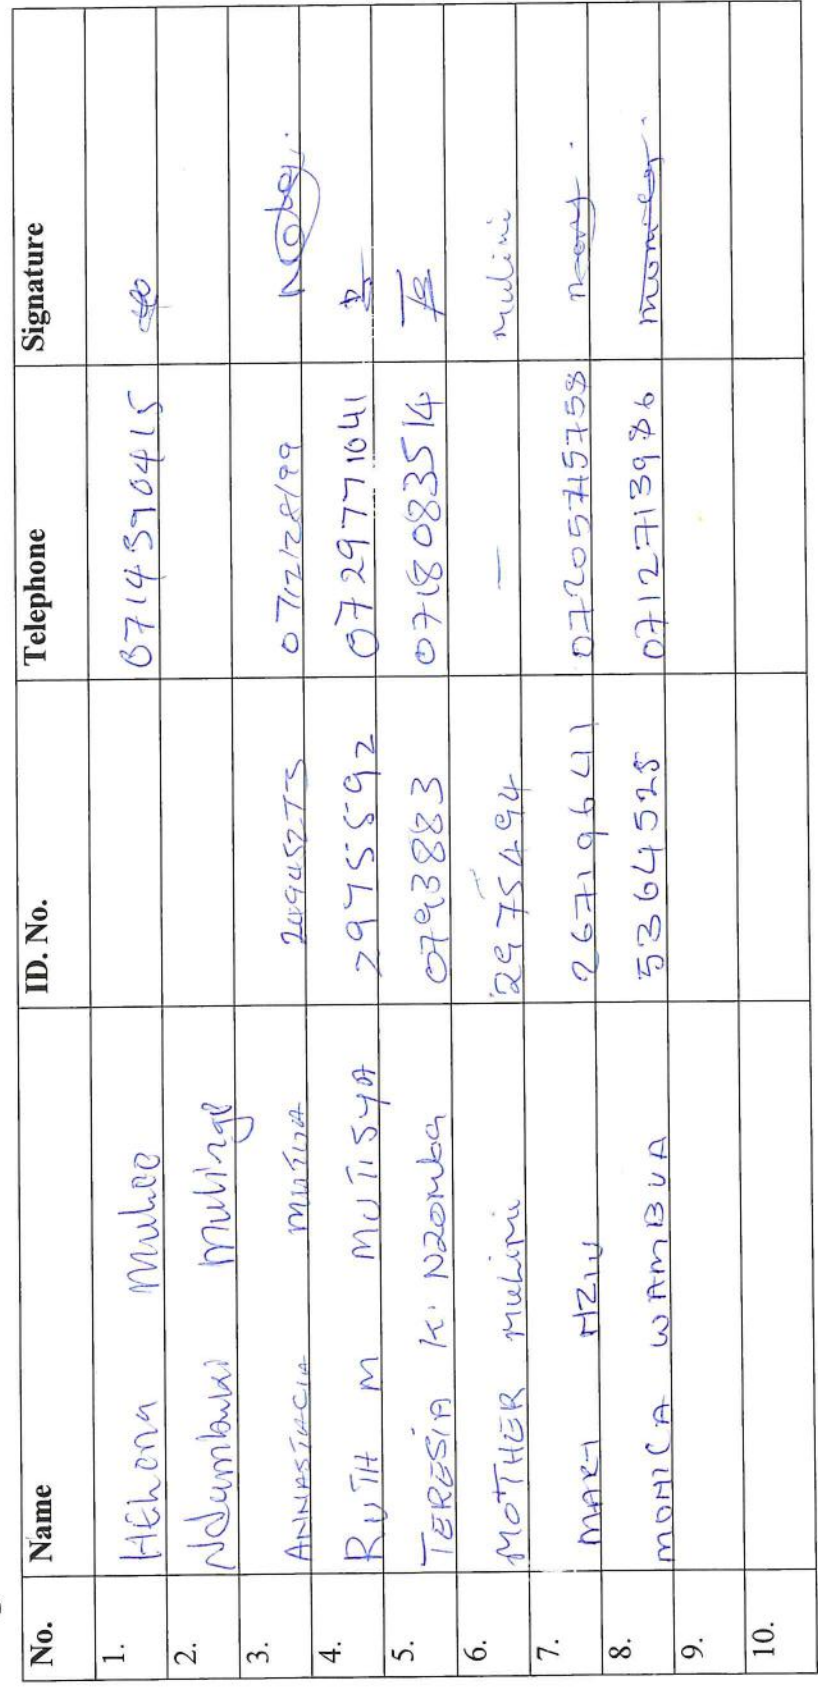 No. Name ID. No. Telephone Signature
1. Helena Mukee 0714390415
2. Ndumbuki Mulinge
3. ANNASTACIA MUTUA 0712128199
4. RUTH M MUTISYA 29755592 0729771041
5. TERESIA K. Nzomba 0793883 0718083514
6. MOTHER Mulini 29754494 — Mulini
7. MARY NZIU 26719641 Mary.
8. MONICA WAMBUA 5364525 0712713986 Monica.
9.
10.